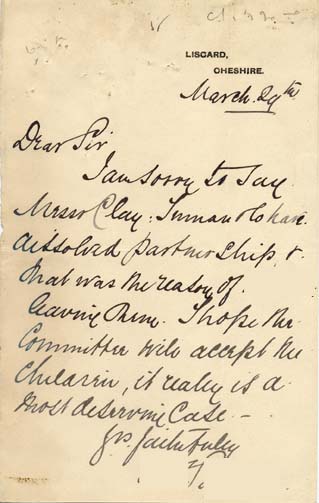 LISCARD,
CHESHIRE.
March 29th
Dear Sir
I am sorry to say
Messrs Clay. Inman & Co have
dissolved partnership, &
that was the reason of
leaving them. I hope the
Committee will accept the
Children, it really is a
most deserving Case –
Yrs. faithfully